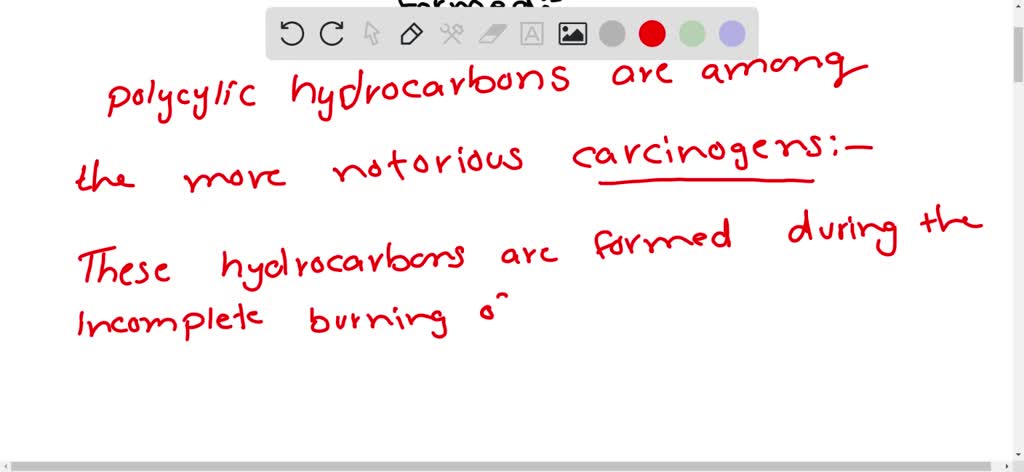 Formed:-
polycylic hydrocarbons are among
the more notorious carcinogens:-
These hydrocarbons are formed during the
Incomplete burning o